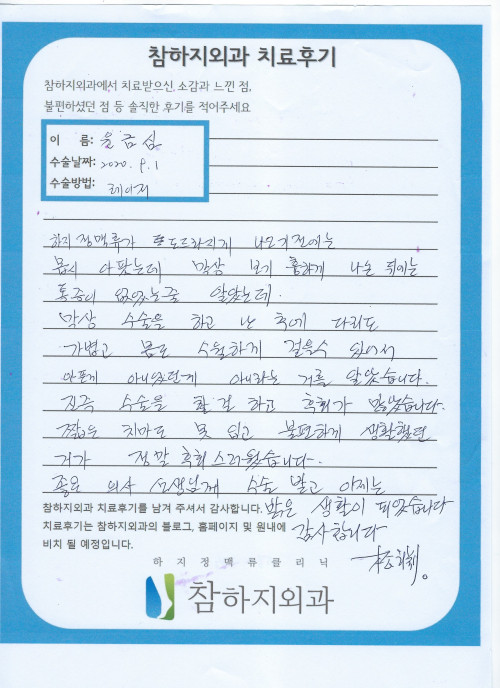 참하지외과 치료후기
참하지외과에서 치료받으신, 소감과 느낀 점,
불편하셨던 점 등 솔직한 후기를 적어주세요
이 름: 윤금심
수술날짜: 2020. 9. 1
수술방법: 레이저
하지 정맥류가 또도드라지게 나오기전에는
몹시 아팠는데 막상 보기 흉하게 나온 뒤에는
통증이 없었는줄 알았는데.
막상 수술을 하고 난 후에 다리도
가볍고 몸도 수월하게 걸을수 있어서
아픈게 아니었던게 아니라는 거를 알았습니다.
진즉 수술을 할걸 하고 후회가 많았습니다.
짧은 치마도 못 입고 불편하게 생활했던
거가 정말 후회스러웠습니다.
좋은 의사 선생님께 수술 받고 이제는
밝은 생활이 되었습니다
감사합니다
참하지외과 치료후기를 남겨 주셔서 감사합니다.
치료후기는 참하지외과의 블로그, 홈페이지 및 원내에
비치 될 예정입니다.
하지정맥류클리닉
참하지외과